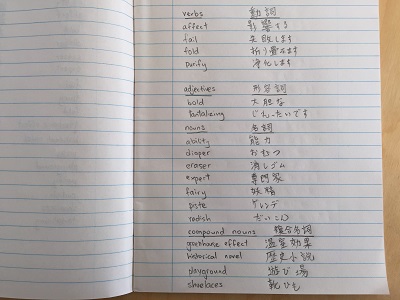 verbs 動詞
affect 影響する
fail 失敗します
fold 折り畳みます
purify 浄化します
adjectives 形容詞
bold 大胆な
tantalizing じんったいです
nouns 名詞
ability 能力
diaper おむつ
eraser 消しゴム
expert 専門家
fairy 妖精
piste ゲレンデ
radish だいこん
compound nouns 複合名詞
greenhouse effect 温室効果
historical novel 歴史小説
playground 遊び場
shoelaces 靴ひも